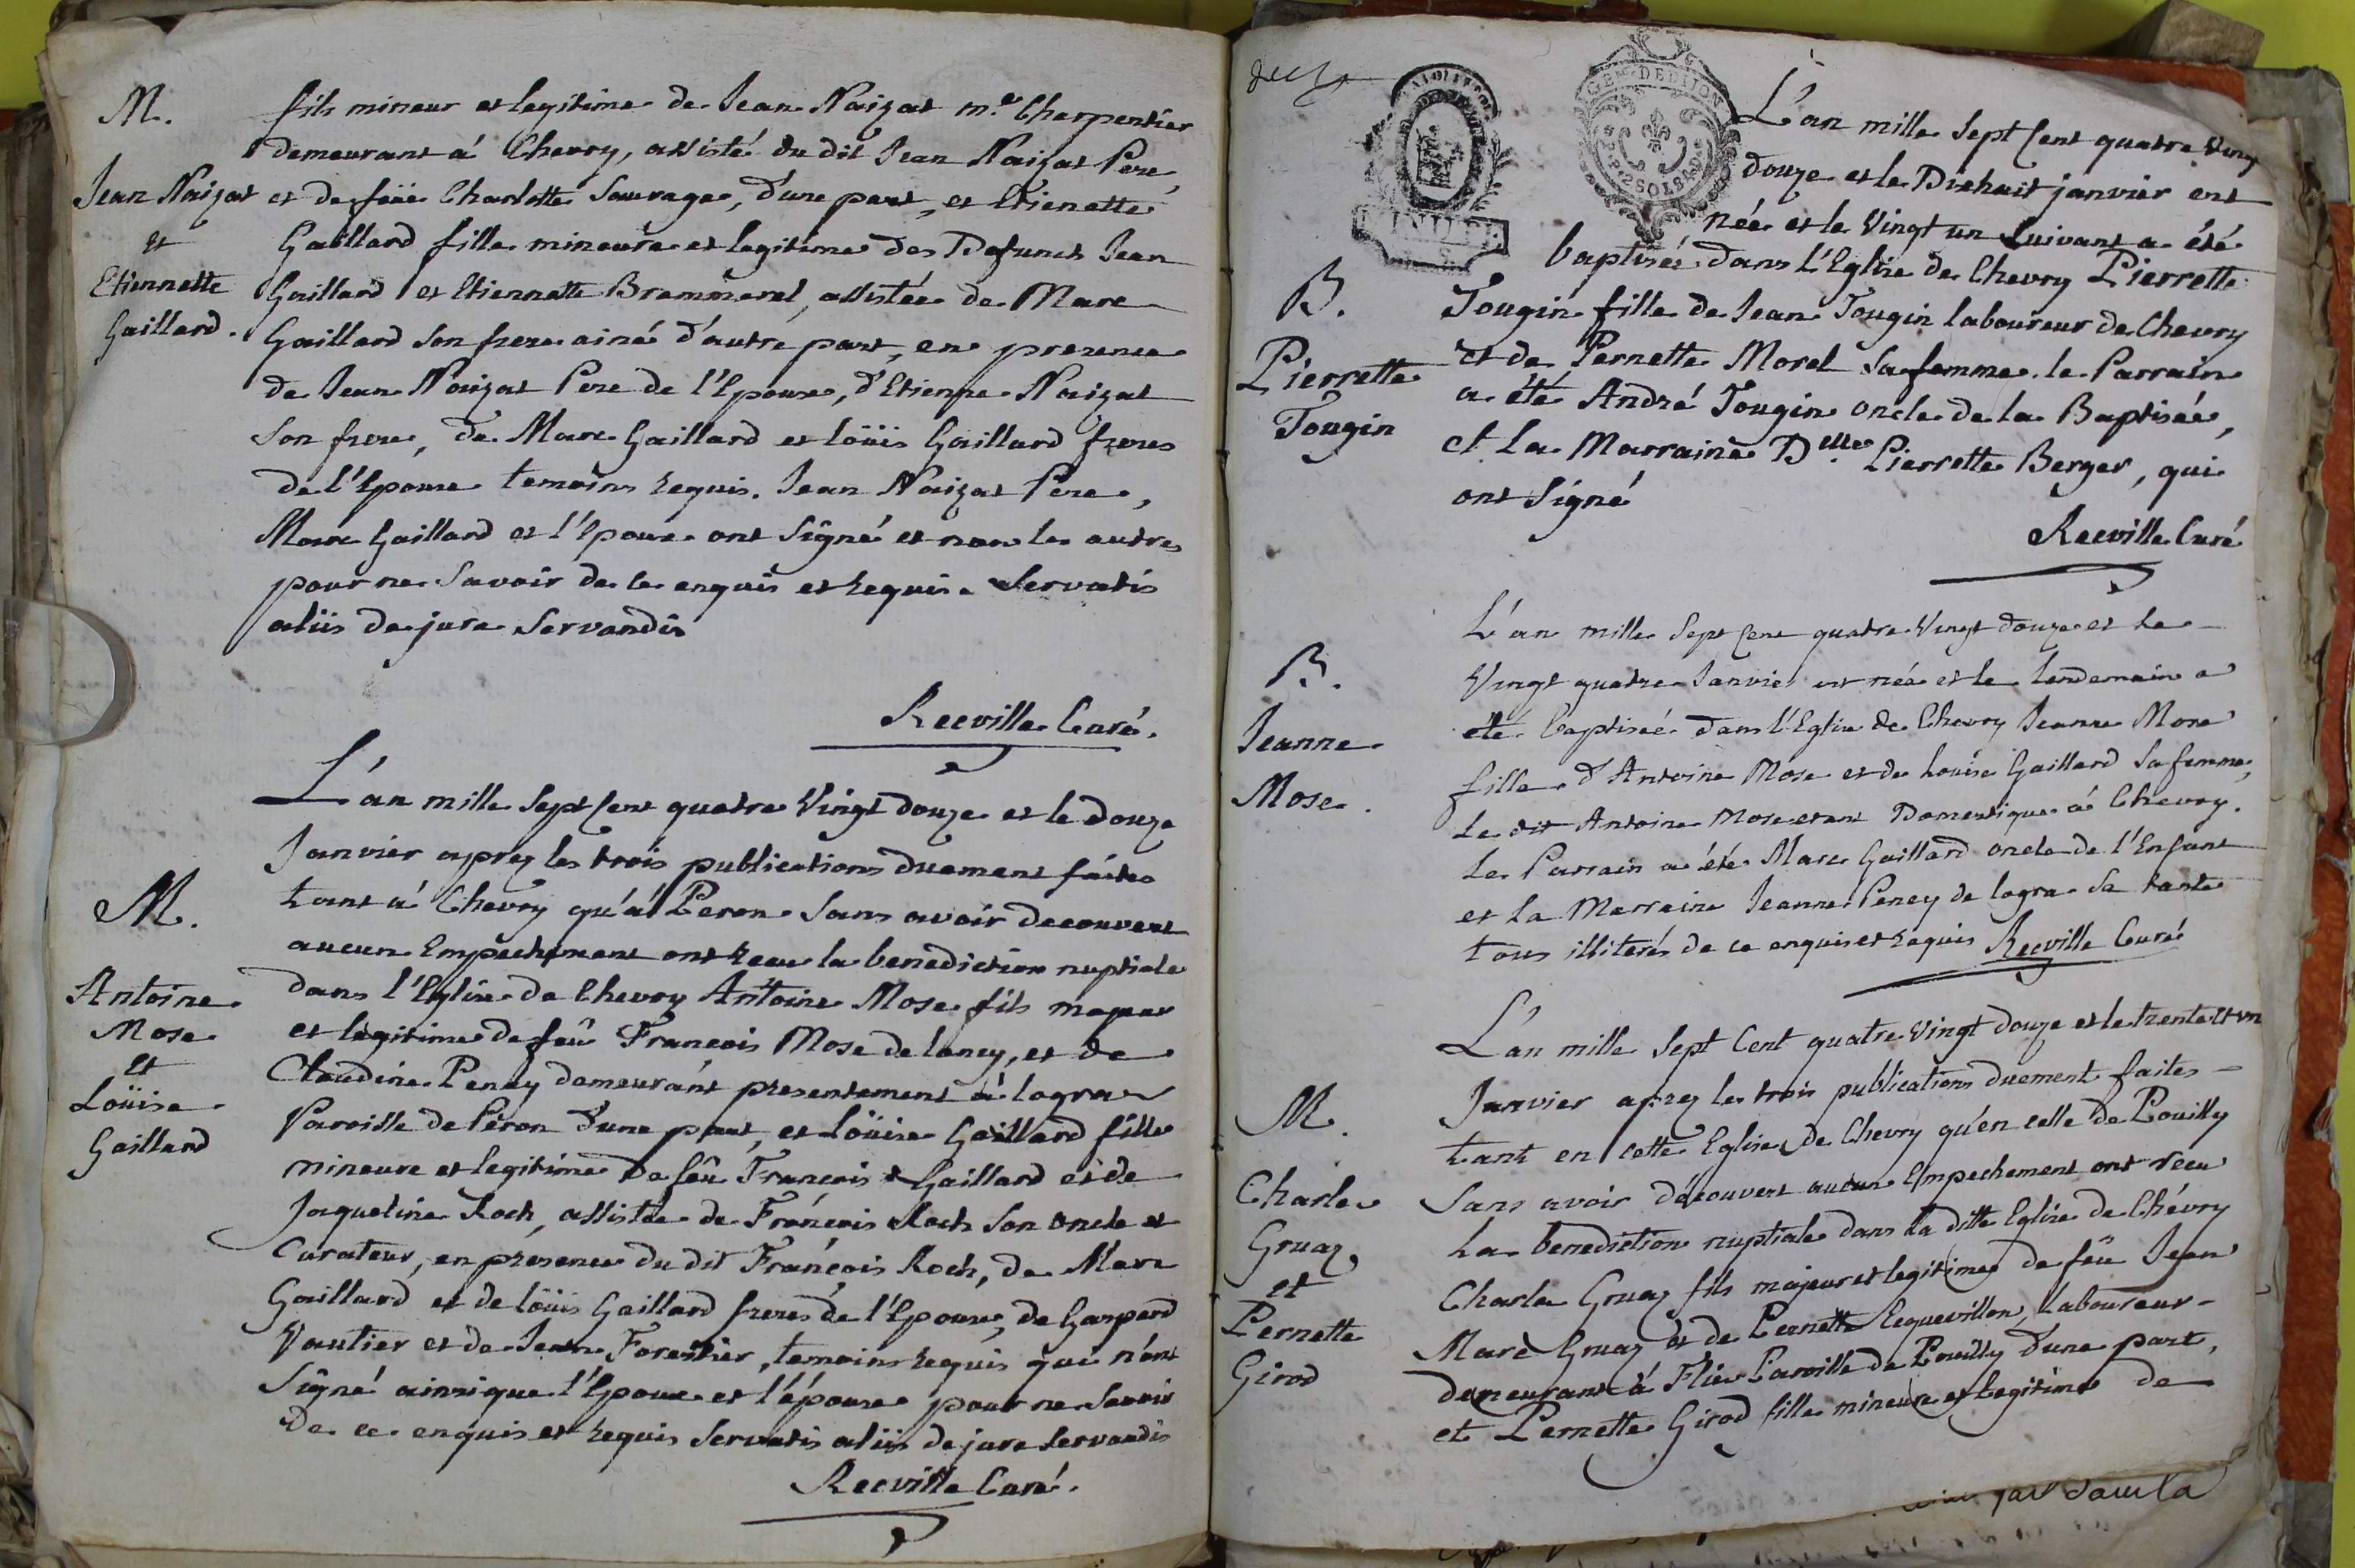 M.
Jean Naizat
et
Etiennette
Gaillard.
fils mineur et legitime de Jean Naizat m.e Charpentier
demeurant á Chevry, assisté du dit Jean Naizat Pere
et de feüe Charlotte Sauvage, d'une part, et Etienette
Gaillard fille mineure et legitime des Defunts Jean
Gaillard et Etiennette Brammerel, assistée de Marc
Gaillard son frere ainé d'autre part, en presence
de Jean Naizat Pere de l'Epoux, d'Etienne Naizat
son frere, de Marc Gaillard et loüis Gaillard freres
de l'Epouse temoins requis. Jean Naizat Pere,
Marc Gaillard et l'Epoux ont signé et non les autres
pour ne savoir de ce enquis et requis. Servatis
aliis de jure servandis
Reeville Curé.
M.
Antoine
Mose
et
Loüise
Gaillard
L'an mille sept cent quatre Vingt douze et le douze
Janvier aprez les trois publications duement faites
tant á Chevry qu'á Peron sans avoir decouvert
aucun Empechement ont recu la benediction nuptiale
dans l'Eglise de Chevry Antoine Mose fils majeur
et legitime de feû François Mose de lancy, et de
Claudine Peney demeurant presentement á logra
Paroisse de Péron d'une part, et loüise Gaillard fille
mineure et legitime de feû François Gaillard et de
Jaqueline Roch, assistée de François Roch son oncle et
Curateur, en presence du dit François Roch, de Marc
Gaillard et de loüis Gaillard freres de l'Epouse, de Gaspard
Vautier et de Jean Forestier, temoins requis qui n'ont
signé ainsi que l'Epoux et l'épouse pour ne savoir
de ce enquis et requis servatis aliis de jure servandis
Reeville Curé.
B.
Pierrette
Tougin
L'an mille sept cent quatre Vingt
douze et le Dixhuit janvier est
née et le Vingt un suivant a été
baptisée dans l'Eglise de Chevry Pierrette
Tougin fille de Jean Tougin laboureur de Chevry
et de Pernette Morel sa femme. le Parrain
a été André Tougin oncle de la Baptisée,
et la Marraine D.elle Pierrette Berger, qui
ont signé
Reeville Curé
B.
Jeanne
Mose.
L'an mille sept cent quatre Vingt douze et le
Vingt quatre Janvier est née et le lendemain a
été baptisée dans l'Eglise de Chevry Jeanne Mose
fille d'Antoine Mose et de Louise Gaillard sa femme,
le dit Antoine Mose etant Domestique á Chevry.
le Parrain a été Marc Gaillard oncle de l'Enfant
et la Marraine Jeanne Peney de logra sa tante
tous illiterés de ce enquis et requis Reeville Curé
M.
Charle
Gruaz
et
Pernette
Girod
L'an mille sept Cent quatre Vingt douze et le trente et un
Janvier aprez les trois publications duement faites
tant en cette Eglise de Chevry qu'en celle de Pouilly
sans avoir découvert aucun Empechement ont recu
la benediction nuptiale dans la ditte Eglise de Chévry
Charle Gruaz fils majeur et legitime de feû Jean
Marc Gruaz et de Pernette Lequevillon, laboureur
demeurant á Flies Paroisse de Pouilly d'une part,
et Pernette Girod fille mineure et legitime de
GEN. DE DIJON
2 SOLS